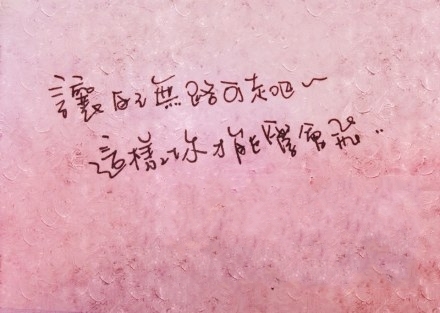 讓自己無路可走吧~
這樣你才能學會飛..